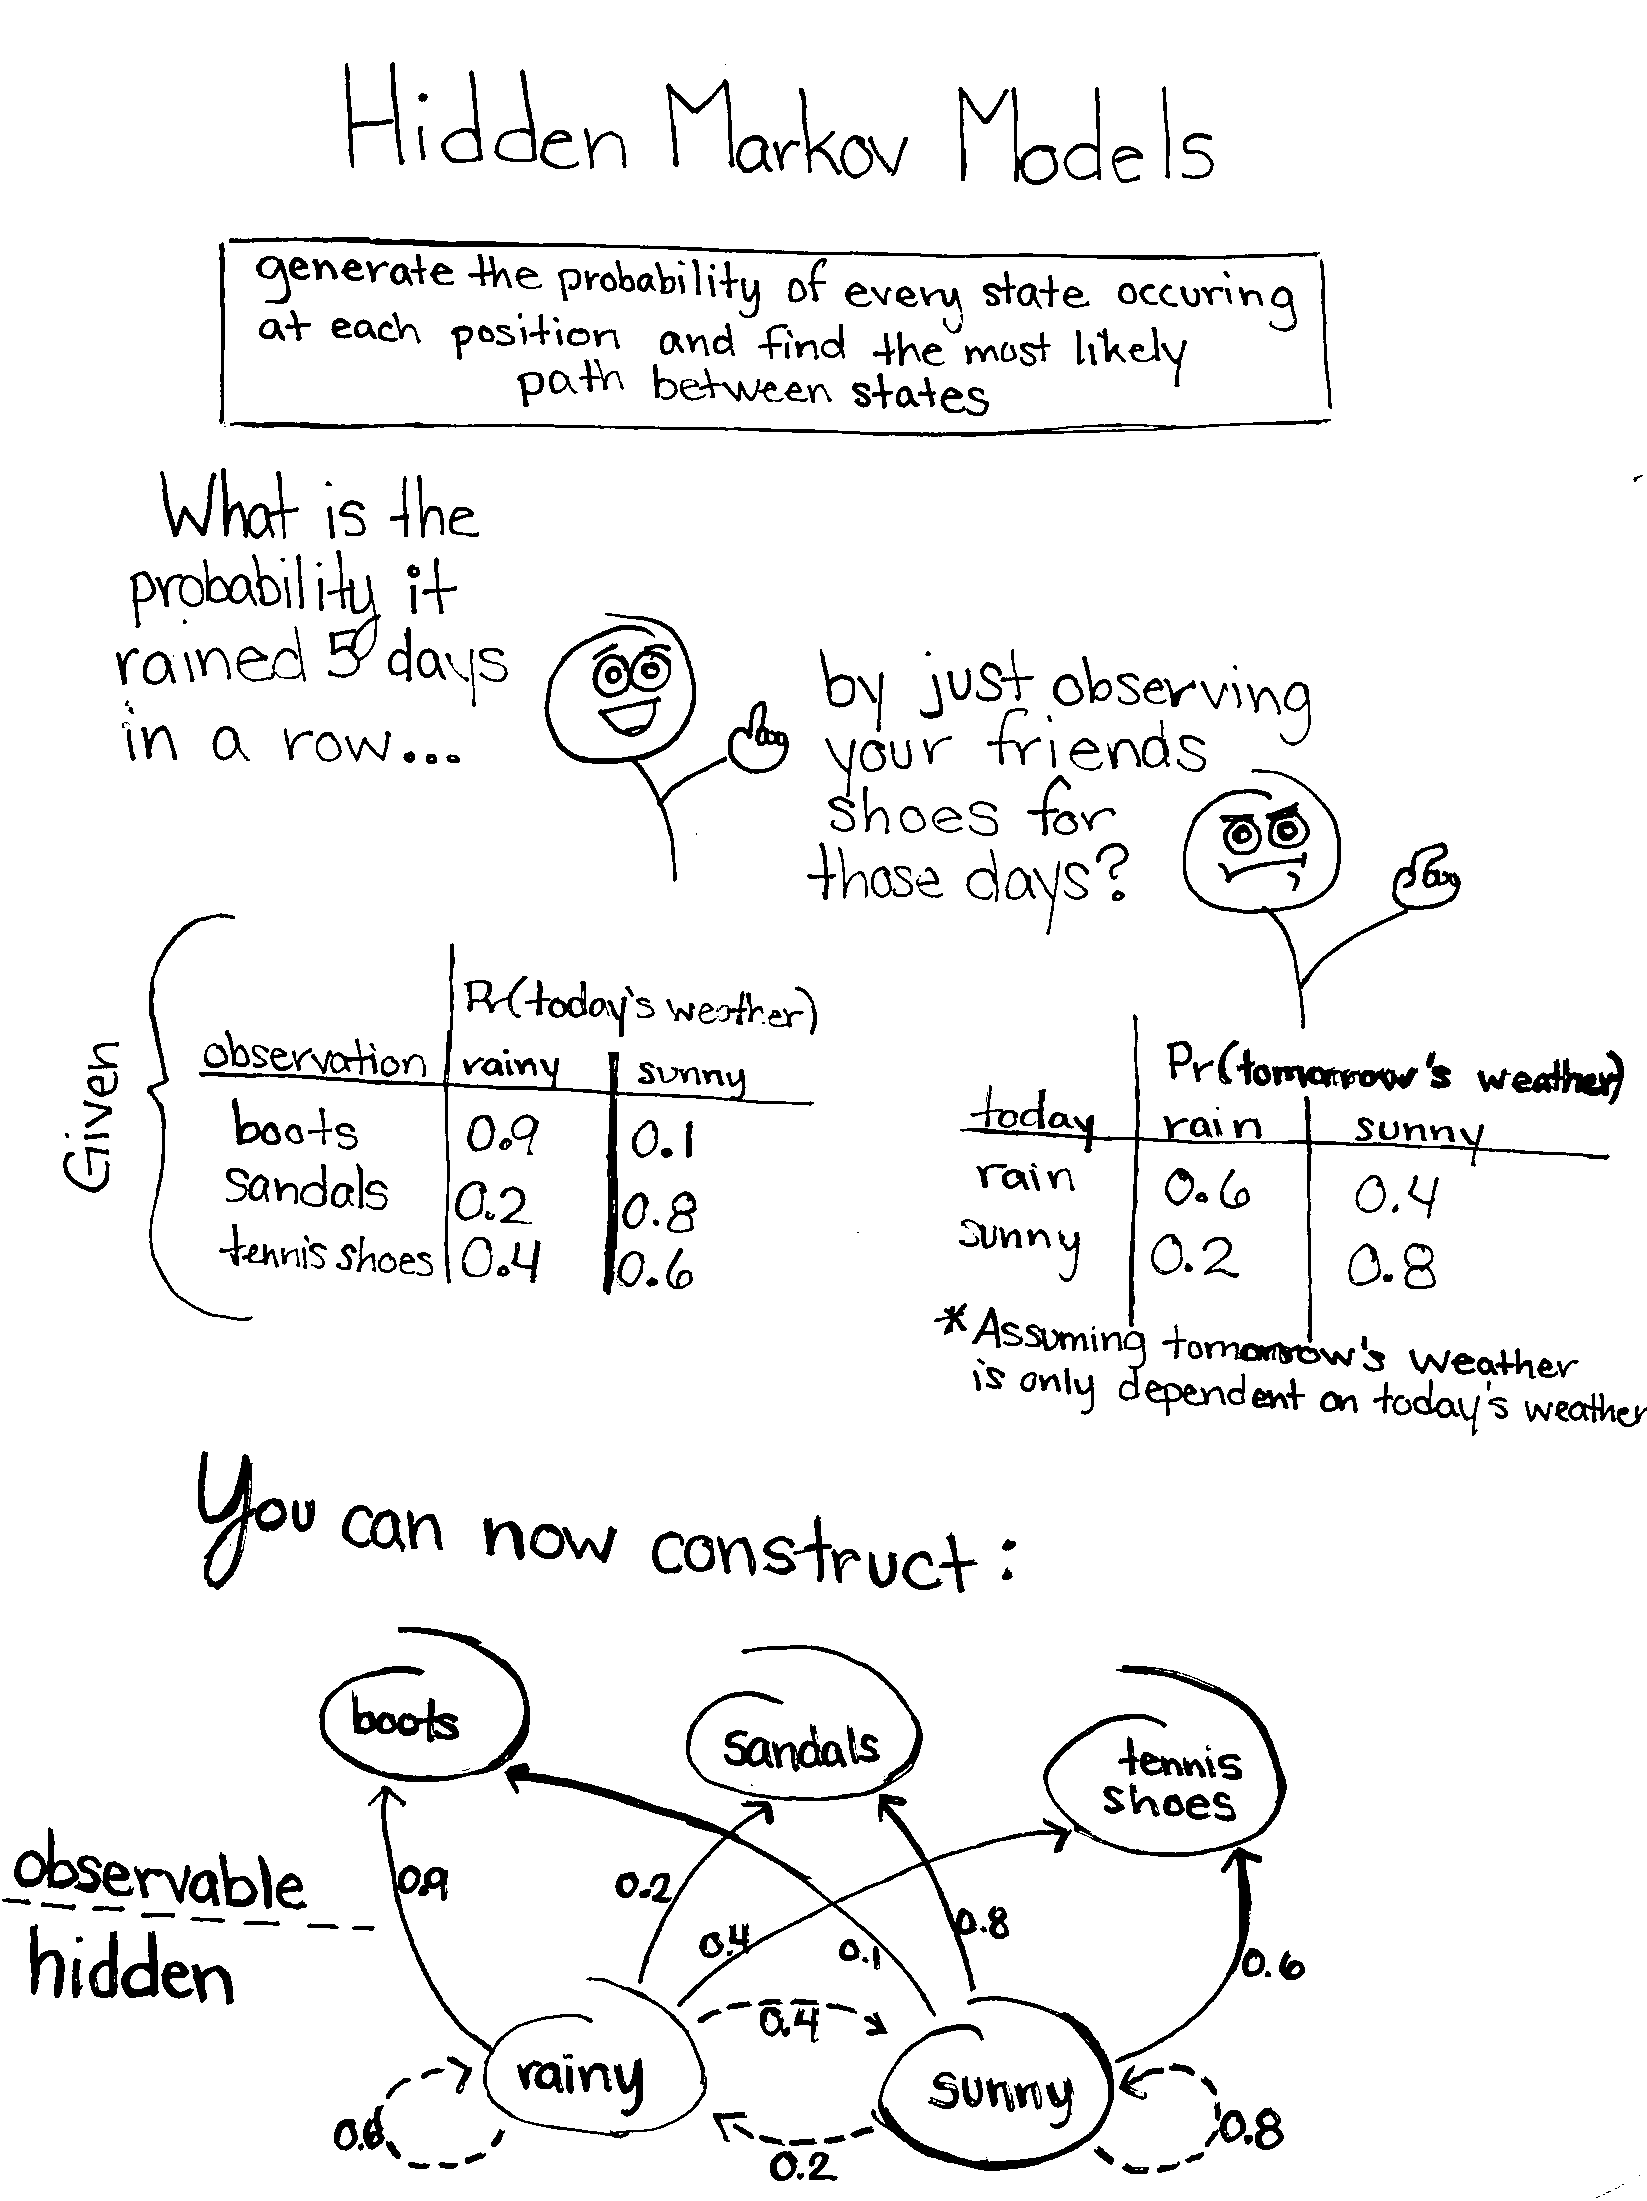 Hidden Markov Models
generate the probability of every state occuring
at each position and find the most likely
path between states
What is the
probability it
rained 5 days
in a row...
by just observing
your friends
shoes for
those days?
Given
Pr(today's weather)
observation rainy sunny
boots 0.9 0.1
sandals 0.2 0.8
tennis shoes 0.4 0.6
Pr(tomorrow's weather)
today rain sunny
rain 0.6 0.4
sunny 0.2 0.8
*Assuming tomorrow's weather
is only dependent on today's weather
You can now construct:
boots
sandals
tennis
shoes
observable
hidden
0.9
0.2
0.4
0.1
0.8
0.6
rainy
0.4
sunny
0.6
0.2
0.8